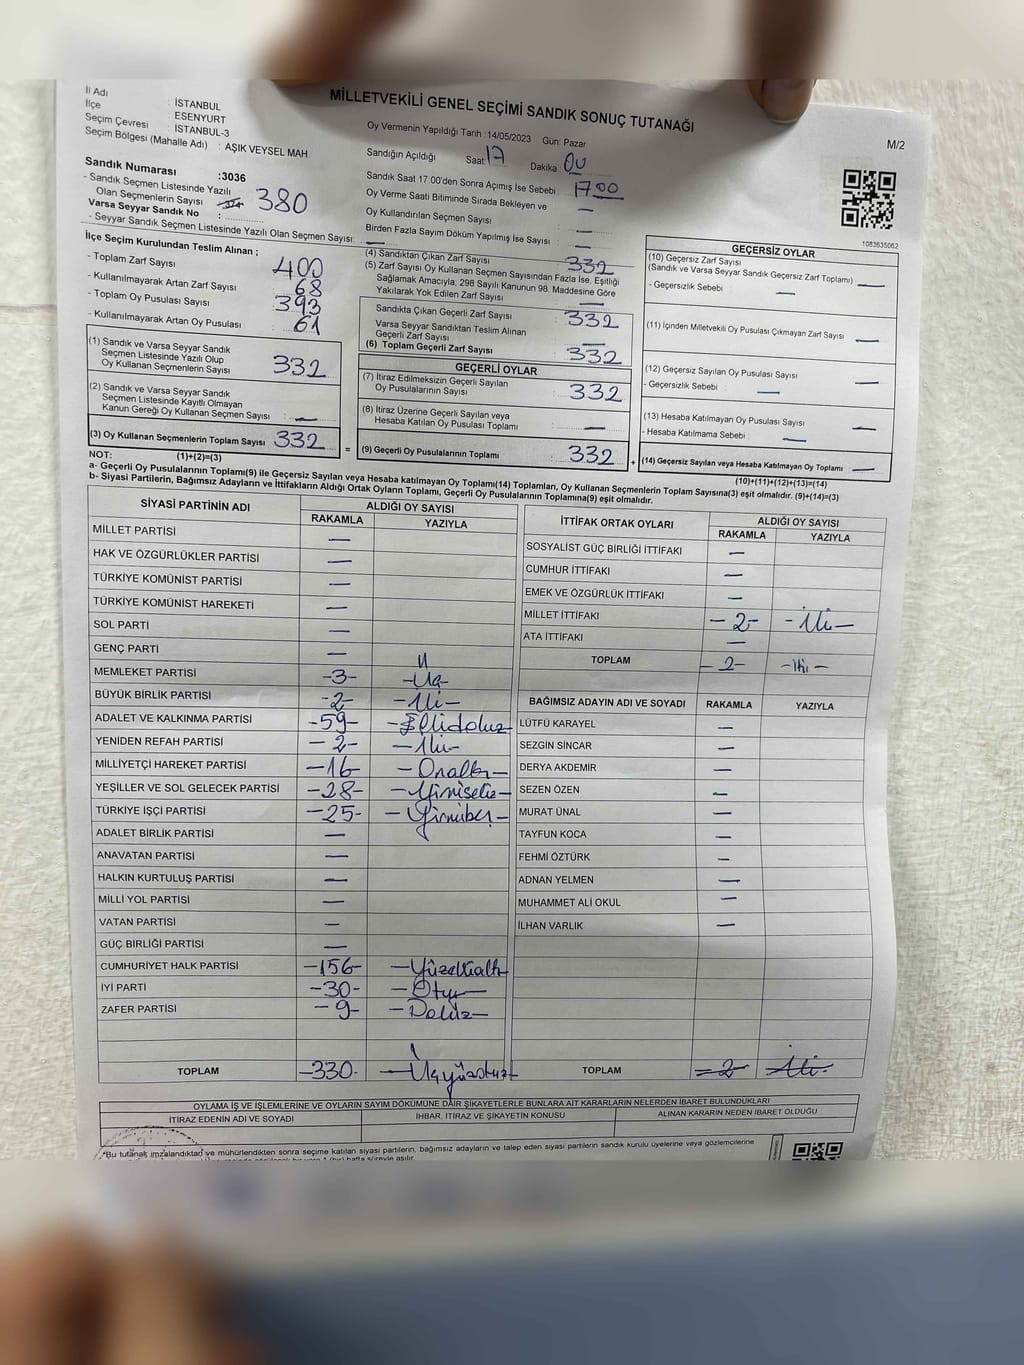 MİLLETVEKİLİ GENEL SEÇİMİ SANDIK SONUÇ TUTANAĞI
M/2
İl Adı : İSTANBUL
İlçe : ESENYURT
Seçim Çevresi : İSTANBUL-3
Seçim Bölgesi (Mahalle Adı) : AŞIK VEYSEL MAH.
Oy Vermenin Yapıldığı Tarih :14/05/2023 Gün: Pazar
Sandığın Açıldığı Saat 17 Dakika 00
Sandık Saat 17.00'den Sonra Açımış İse Sebebi : 17 00
Oy Verme Saati Bitiminde Sırada Bekleyen ve
Oy Kullandırılan Seçmen Sayısı : —
Birden Fazla Sayım Döküm Yapılmış İse Sayısı : —
Sandık Numarası :3036
- Sandık Seçmen Listesinde Yazılı
Olan Seçmenlerin Sayısı 380
Varsa Seyyar Sandık No :
- Seyyar Sandık Seçmen Listesinde Yazılı Olan Seçmen Sayısı: —
1083635062
İlçe Seçim Kurulundan Teslim Alınan ;
- Toplam Zarf Sayısı : 400
- Kullanılmayarak Artan Zarf Sayısı : 68
- Toplam Oy Pusulası Sayısı : 393
- Kullanılmayarak Artan Oy Pusulası : 61
(1) Sandık ve Varsa Seyyar Sandık
Seçmen Listesinde Yazılı Olup
Oy Kullanan Seçmenlerin Sayısı : 332
(2) Sandık ve Varsa Seyyar Sandık
Seçmen Listesinde Kayıtlı Olmayan
Kanun Gereği Oy Kullanan Seçmen Sayısı : —
(3) Oy Kullanan Seçmenlerin Toplam Sayısı : 332
(4) Sandıktan Çıkan Zarf Sayısı : 332
(5) Zarf Sayısı Oy Kullanan Seçmen Sayısından Fazla İse, Eşitliği
Sağlamak Amacıyla; 298 Sayılı Kanunun 98. Maddesine Göre
Yakılarak Yok Edilen Zarf Sayısı : —
Sandıkta Çıkan Geçerli Zarf Sayısı : 332
Varsa Seyyar Sandıktan Teslim Alınan
Geçerli Zarf Sayısı : —
(6) Toplam Geçerli Zarf Sayısı : 332
GEÇERLİ OYLAR
(7) İtiraz Edilmeksizin Geçerli Sayılan
Oy Pusulalarının Sayısı : 332
(8) İtiraz Üzerine Geçerli Sayılan veya
Hesaba Katılan Oy Pusulası Toplamı : —
= (9) Geçerli Oy Pusulalarının Toplamı : 332
GEÇERSİZ OYLAR
(10) Geçersiz Zarf Sayısı
(Sandık ve Varsa Seyyar Sandık Geçersiz Zarf Toplamı) : —
- Geçersizlik Sebebi : —
(11) İçinden Milletvekili Oy Pusulası Çıkmayan Zarf Sayısı : —
(12) Geçersiz Sayılan Oy Pusulası Sayısı : —
- Geçersizlik Sebebi : —
(13) Hesaba Katılmayan Oy Pusulası Sayısı : —
- Hesaba Katılmama Sebebi : —
+ (14) Geçersiz Sayılan veya Hesaba Katılmayan Oy Toplamı : —
NOT: (1)+(2)=(3) (10)+(11)+(12)+(13)=(14)
a- Geçerli Oy Pusulalarının Toplamı(9) ile Geçersiz Sayılan veya Hesaba katılmayan Oy Toplamı(14) Toplamları, Oy Kullanan Seçmenlerin Toplam Sayısına(3) eşit olmalıdır. (9)+(14)=(3)
b- Siyasi Partilerin, Bağımsız Adayların ve İttifakların Aldığı Ortak Oyların Toplamı, Geçerli Oy Pusulalarının Toplamına(9) eşit olmalıdır.
SİYASİ PARTİNİN ADI ALDIĞI OY SAYISI
RAKAMLA YAZIYLA
MİLLET PARTİSİ —
HAK VE ÖZGÜRLÜKLER PARTİSİ —
TÜRKİYE KOMÜNİST PARTİSİ —
TÜRKİYE KOMÜNİST HAREKETİ —
SOL PARTİ —
GENÇ PARTİ —
MEMLEKET PARTİSİ -3- -Üç-
BÜYÜK BİRLİK PARTİSİ -2- -İki-
ADALET VE KALKINMA PARTİSİ -59- -Ellidokuz-
YENİDEN REFAH PARTİSİ -2- -İki-
MİLLİYETÇİ HAREKET PARTİSİ -16- -Onaltı-
YEŞİLLER VE SOL GELECEK PARTİSİ -28- -Yirmisekiz-
TÜRKİYE İŞÇİ PARTİSİ -25- -Yirmibeş-
ADALET BİRLİK PARTİSİ —
ANAVATAN PARTİSİ —
HALKIN KURTULUŞ PARTİSİ —
MİLLİ YOL PARTİSİ —
VATAN PARTİSİ —
GÜÇ BİRLİĞİ PARTİSİ —
CUMHURİYET HALK PARTİSİ -156- -Yüzellialtı-
İYİ PARTİ -30- -Otuz-
ZAFER PARTİSİ -9- -Dokuz-
TOPLAM -330- -Üçyüzotuz-
İTTİFAK ORTAK OYLARI ALDIĞI OY SAYISI
RAKAMLA YAZIYLA
SOSYALİST GÜÇ BİRLİĞİ İTTİFAKI —
CUMHUR İTTİFAKI —
EMEK VE ÖZGÜRLÜK İTTİFAKI —
MİLLET İTTİFAKI -2- -İki-
ATA İTTİFAKI —
TOPLAM -2- -İki-
BAĞIMSIZ ADAYIN ADI VE SOYADI RAKAMLA YAZIYLA
LÜTFÜ KARAYEL —
SEZGİN SİNCAR —
DERYA AKDEMİR —
SEZEN ÖZEN —
MURAT ÜNAL —
TAYFUN KOCA —
FEHMİ ÖZTÜRK —
ADNAN YELMEN —
MUHAMMET ALİ OKUL —
İLHAN VARLIK —
TOPLAM -2- -İki-
OYLAMA İŞ VE İŞLEMLERİNE VE OYLARIN SAYIM DÖKÜMÜNE DAİR ŞİKAYETLERLE BUNLARA AİT KARARLARIN NELERDEN İBARET BULUNDUKLARI
İTİRAZ EDENİN ADI VE SOYADI İHBAR, İTİRAZ VE ŞİKAYETİN KONUSU ALINAN KARARIN NEDEN İBARET OLDUĞU
*Bu tutanak imzalandıktan ve mühürlendikten sonra seçime katılan siyasi partilerin, bağımsız adayların ve talep eden siyasi partilerin sandık kurulu üyelerine veya gözlemcilerine